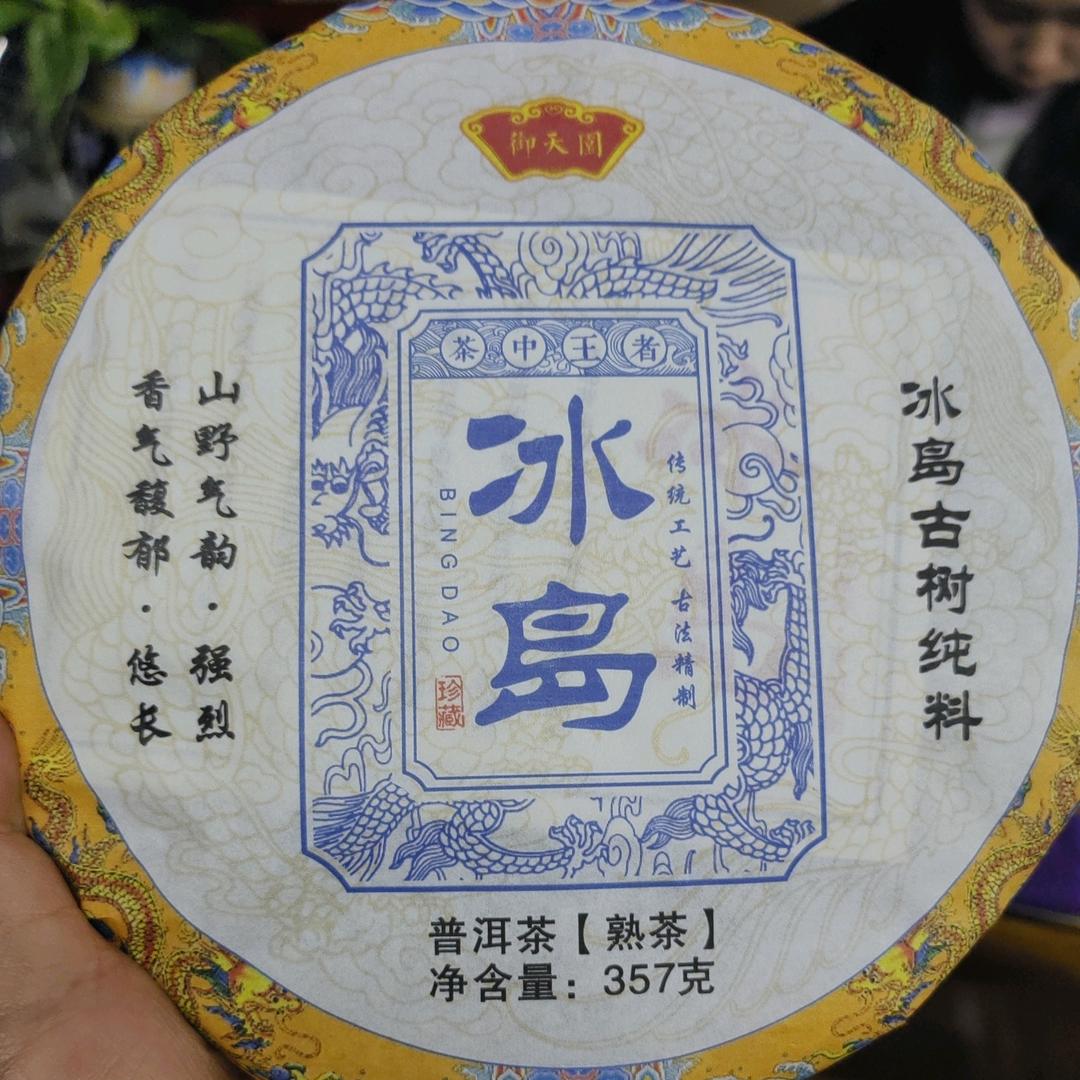 御天圆
茶中王者
冰岛
BINGDAO
传统工艺 古法精制
珍藏
冰岛古树纯料
山野气韵·强烈
香气馥郁·悠长
普洱茶【熟茶】
净含量：357克